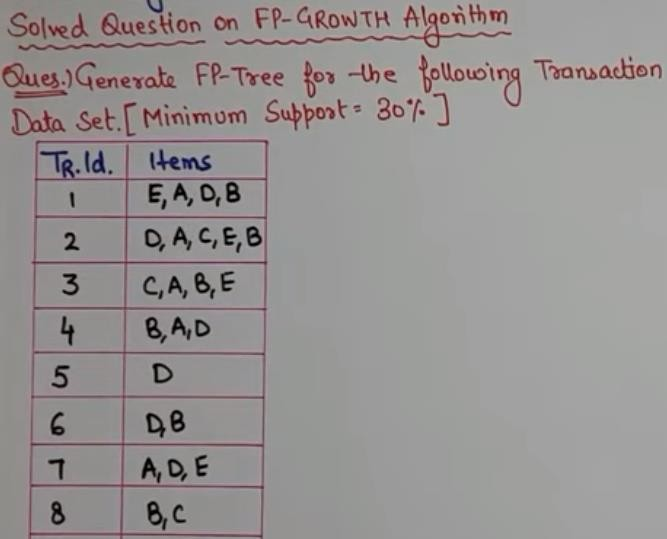 Solved Question on FP-GROWTH Algorithm
Ques.) Generate FP-Tree for the following Transaction
Data Set. [Minimum Support = 30%]
TR.Id. Items
1 E, A, D, B
2 D, A, C, E, B
3 C, A, B, E
4 B, A, D
5 D
6 D, B
7 A, D, E
8 B, C